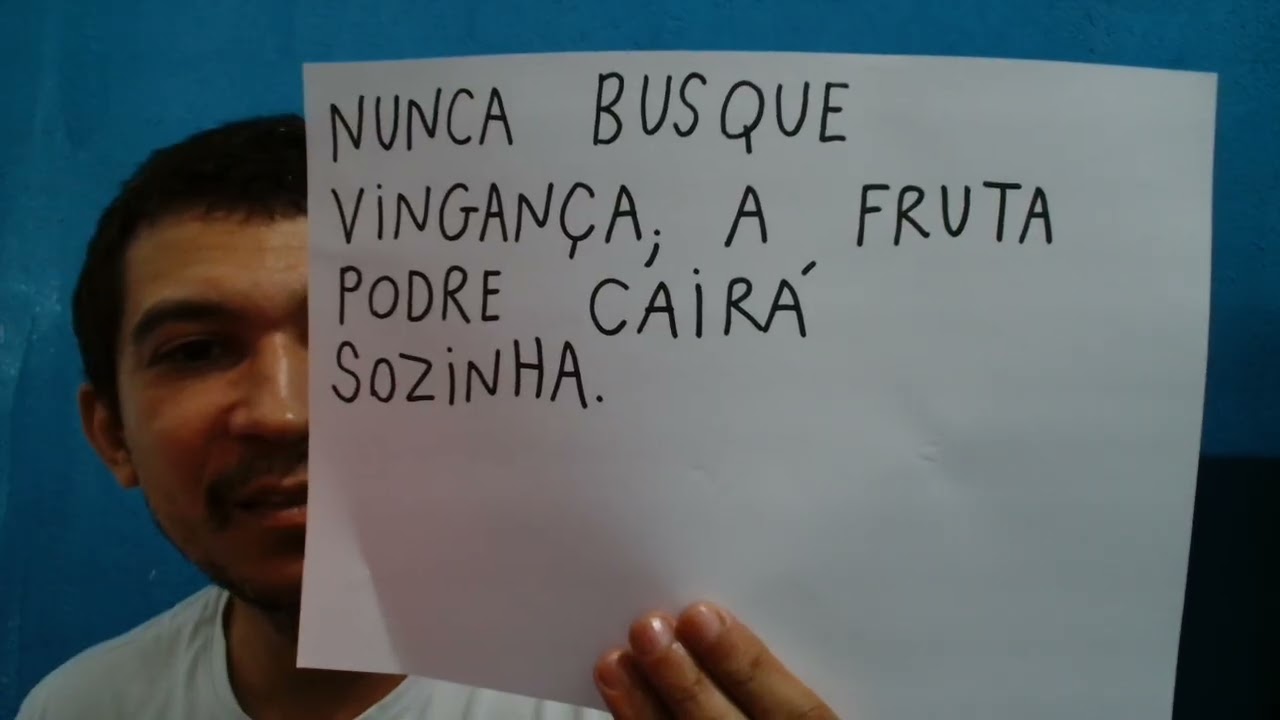 NUNCA BUSQUE
VINGANÇA; A FRUTA
PODRE CAIRÁ
SOZINHA.